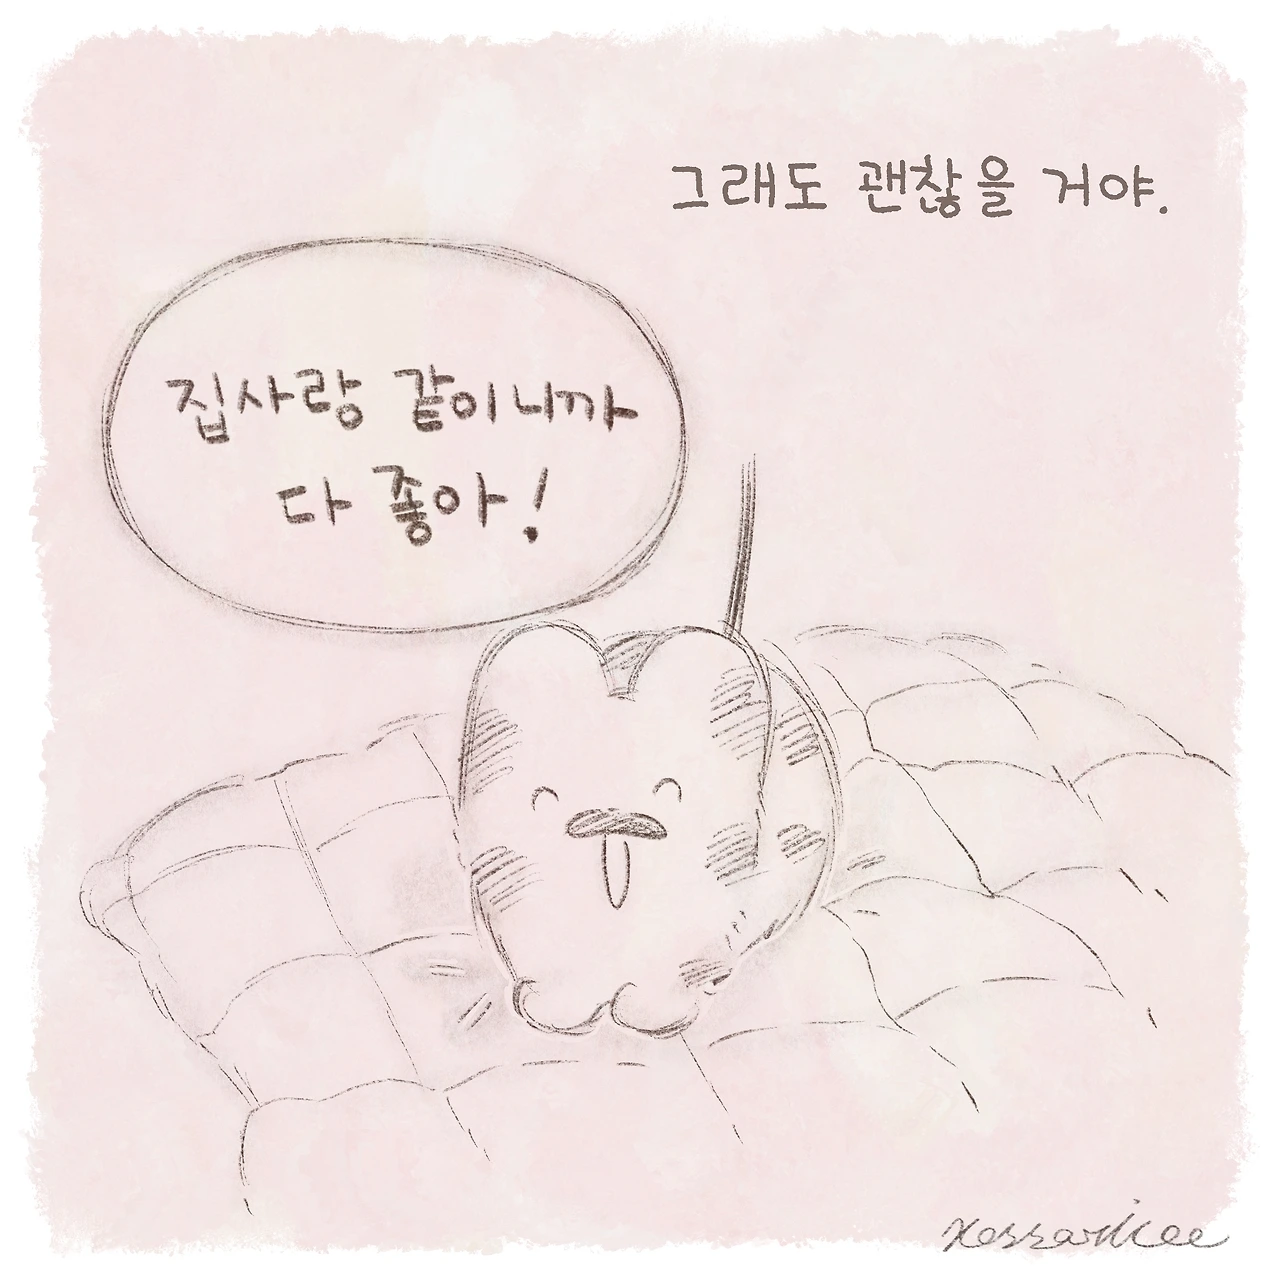 그래도 괜찮을 거야.
집사랑 같이니까
다 좋아!